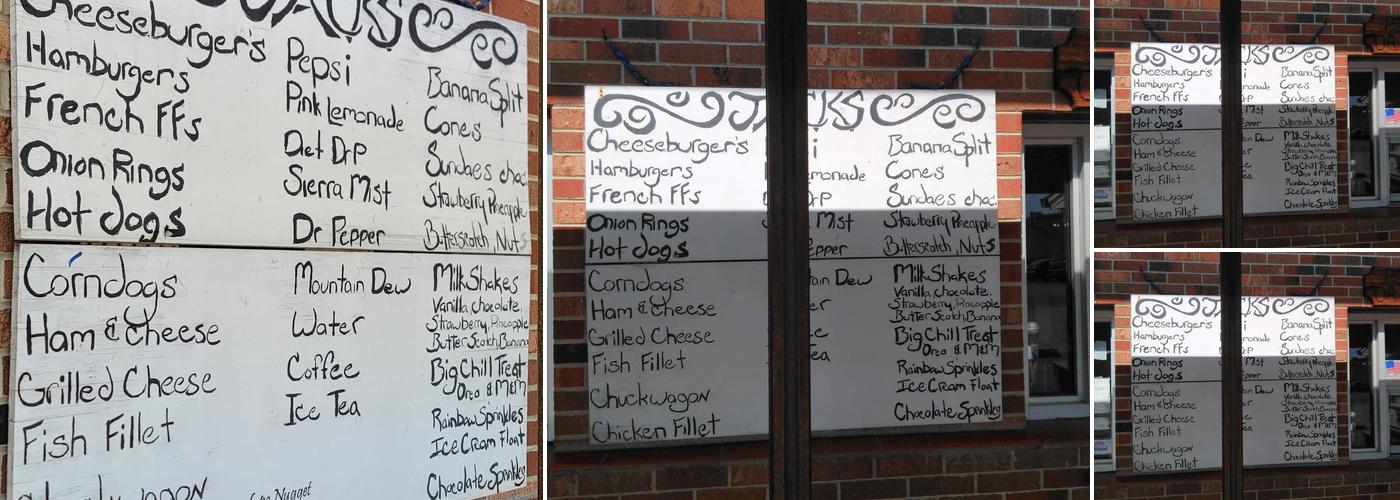 Cheeseburger's
Hamburgers
French FFs
Onion Rings
Hot dogs
Corndogs
Ham & Cheese
Grilled Cheese
Fish Fillet
Pepsi
Pink Lemonade
Diet DrP
Sierra Mist
Dr Pepper
Mountain Dew
Water
Coffee
Ice Tea
Nugget
Banana Split
Cones
Sundaes choc
Strawberry Pineapple
Butterscotch, Nuts
MilkShakes
Vanilla, chocolate,
Strawberry, Pineapple
ButterScotch, Banana
Big Chill Treat
Oreo & M&M
Rainbow Sprinkles
Ice Cream Float
Chocolate Sprinkles
Cheeseburger's
Hamburgers
French FFs
Onion Rings
Hot dogs
Corndogs
Ham & Cheese
Grilled Cheese
Fish Fillet
Chuckwagon
Chicken Fillet
i
emonade
rP
Mist
epper
ain Dew
er
e
Tea
Banana Split
Cones
Sundaes choc
Strawberry Pineapple
Butterscotch, Nuts
MilkShakes
Vanilla, chocolate,
Strawberry, Pineapple
ButterScotch, Banana
Big Chill Treat
Oreo & M&M
Rainbow Sprinkles
Ice Cream Float
Chocolate Sprinkles
Cheeseburger's
Hamburgers
French FFs
Onion Rings
Hot dogs
Corndogs
Ham & Cheese
Grilled Cheese
Fish Fillet
Chuckwagon
Chicken Fillet
Banana Split
Cones
Sundaes choc
Strawberry Pineapple
Butterscotch, Nuts
MilkShakes
Vanilla, chocolate,
Big Chill Treat
Oreo & M&M
Rainbow Sprinkles
Ice Cream Float
Chocolate Sprinkles
Cheeseburger's
Hamburgers
French FFs
Onion Rings
Hot dogs
Corndogs
Ham & Cheese
Grilled Cheese
Fish Fillet
Chuckwagon
Chicken Fillet
Banana Split
Cones
Sundaes choc
Strawberry Pineapple
Butterscotch, Nuts
MilkShakes
Vanilla, chocolate,
Big Chill Treat
Oreo & M&M
Rainbow Sprinkles
Ice Cream Float
Chocolate Sprinkles